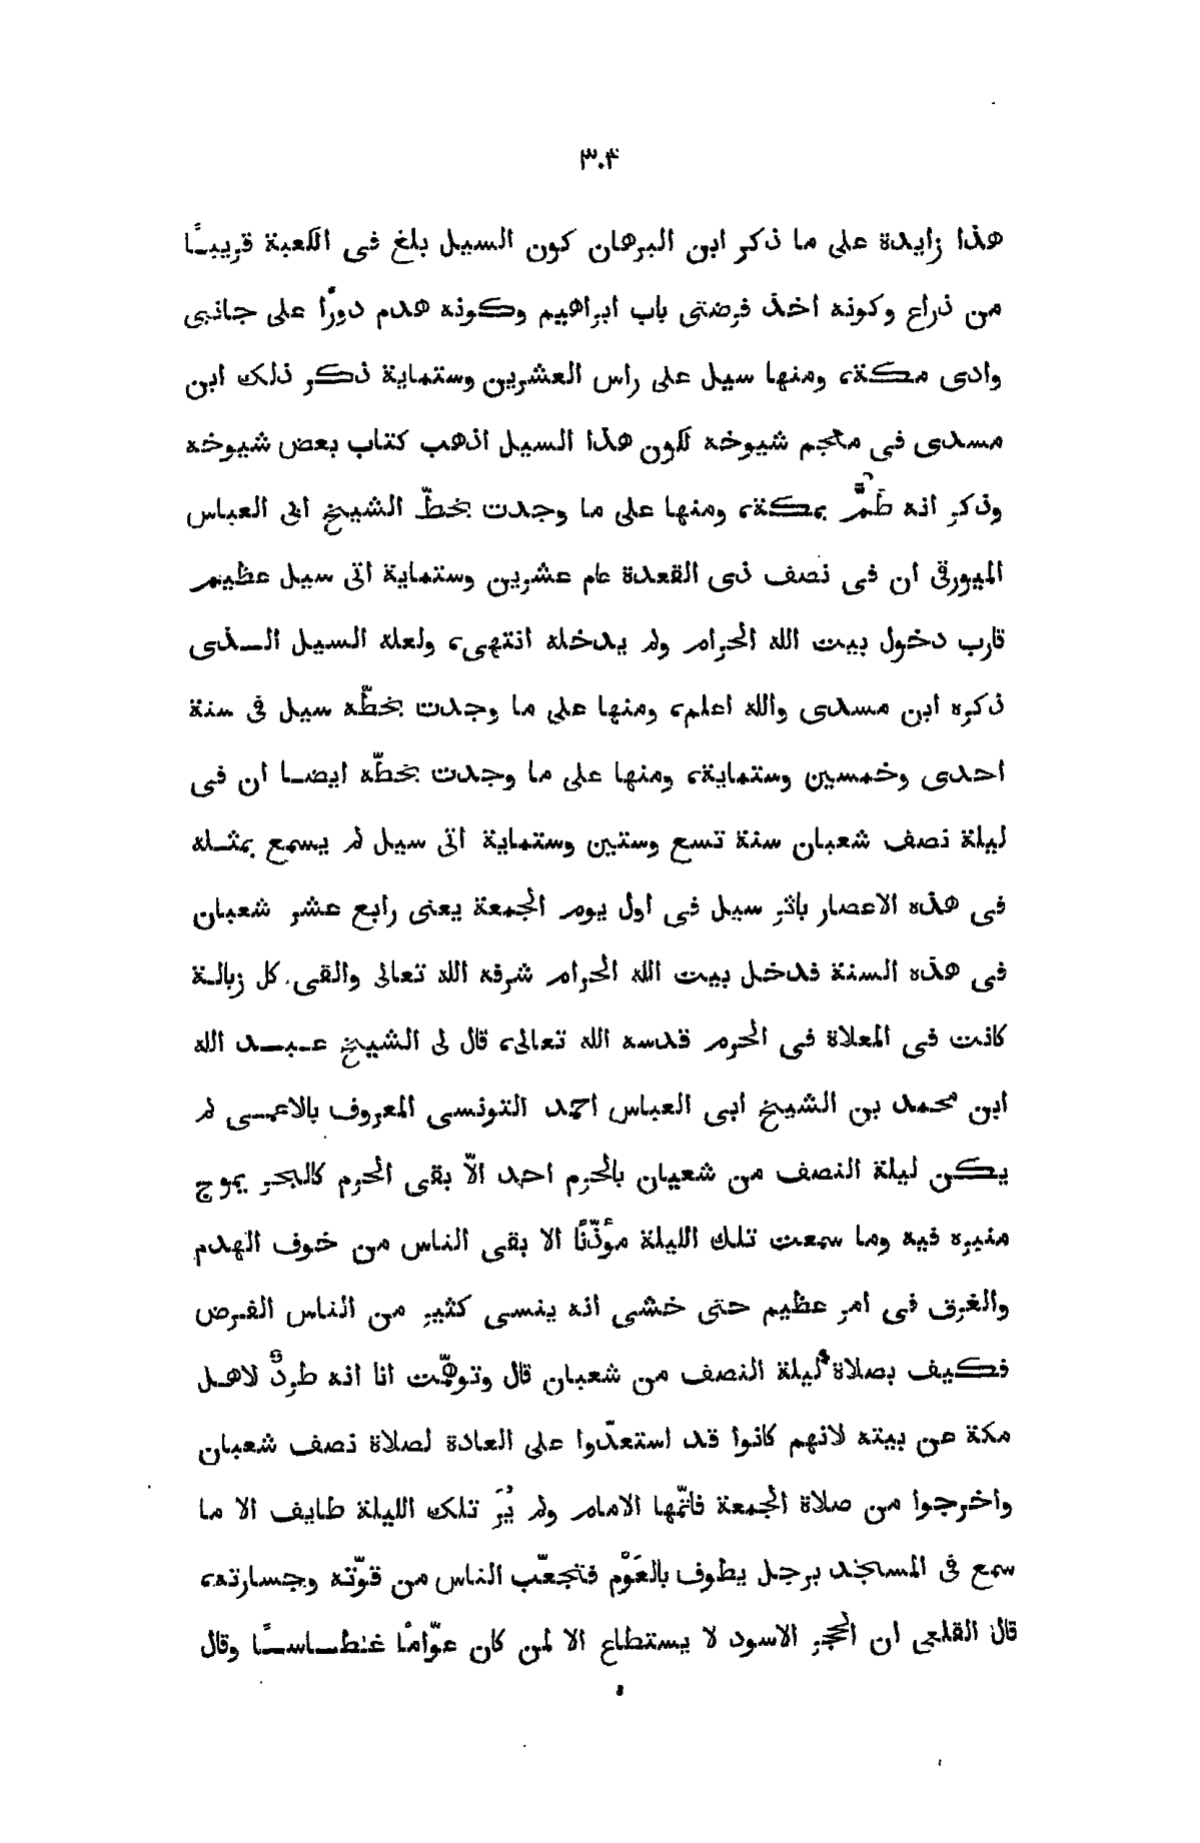 ٣٠۴
هذا زايدة على ما ذكر ابن البرهان كون السيل بلغ فى الكعبة قريبـًا
من ذراع وكونه اخذ فرضتى باب ابراهيم وكونه هدم دورًا على جانبى
وادى مكة، ومنها سيل على راس العشرين وستماية ذكر ذلك ابن
مسدى فى معجم شيوخه لكون هذا السيل اذهب كتاب بعض شيوخه
وذكر انه طَمَّ بمكة، ومنها على ما وجدت بخطّ الشيخ ابى العباس
الميورقى ان فى نصف ذى القعدة عام عشرين وستماية اتى سيل عظيم
قارب دخول بيت الله الحرام ولم يدخله انتهى، ولعله السيل الـذى
ذكره ابن مسدى والله اعلم، ومنها على ما وجدت بخطّه سيل فى سنة
احدى وخمسين وستماية، ومنها على ما وجدت بخطّه ايضـا ان فى
ليلة نصف شعبان سنة تسع وستين وستماية اتى سيل لم يسمع بمثـله
فى هذه الاعصار باثر سيل فى اول يوم الجمعة يعنى رابع عشر شعبان
فى هذه السنة فدخل بيت الله الحرام شرفه الله تعالى والقى كل زبالـة
كانت فى المعلاة فى الحرم قدسه الله تعالى، قال لى الشيخ عـبـد الله
ابن محمد بن الشيخ ابى العباس احمد التونسى المعروف بالاعمـى لم
يكن ليلة النصف من شعبان بالحرم احد الّا بقى الحرم كالبحر يموج
منبره فيه وما سمعت تلك الليلة مؤذّنًا الا بقى الناس من خوف الهدم
والغرق فى امر عظيم حتى خشى انه ينسى كثير من الناس الفـرض
فكيف بصلاة ليلة النصف من شعبان قال وتوهّمت انا انه طردٌ لاهـل
مكة عن بيته لانهم كانوا قد استعدّوا على العادة لصلاة نصف شعبان
واخرجوا من صلاة الجمعة فاتمّها الامام ولم يُرَ تلك الليلة طايف الا ما
سمع فى المساجد برجل يطوف بالعَوْم فتعجّب الناس من قوّته وجسارته،
قال القلعى ان الحجر الاسود لا يستطاع الا لمن كان عوّامًا غـطـاسـًا وقال